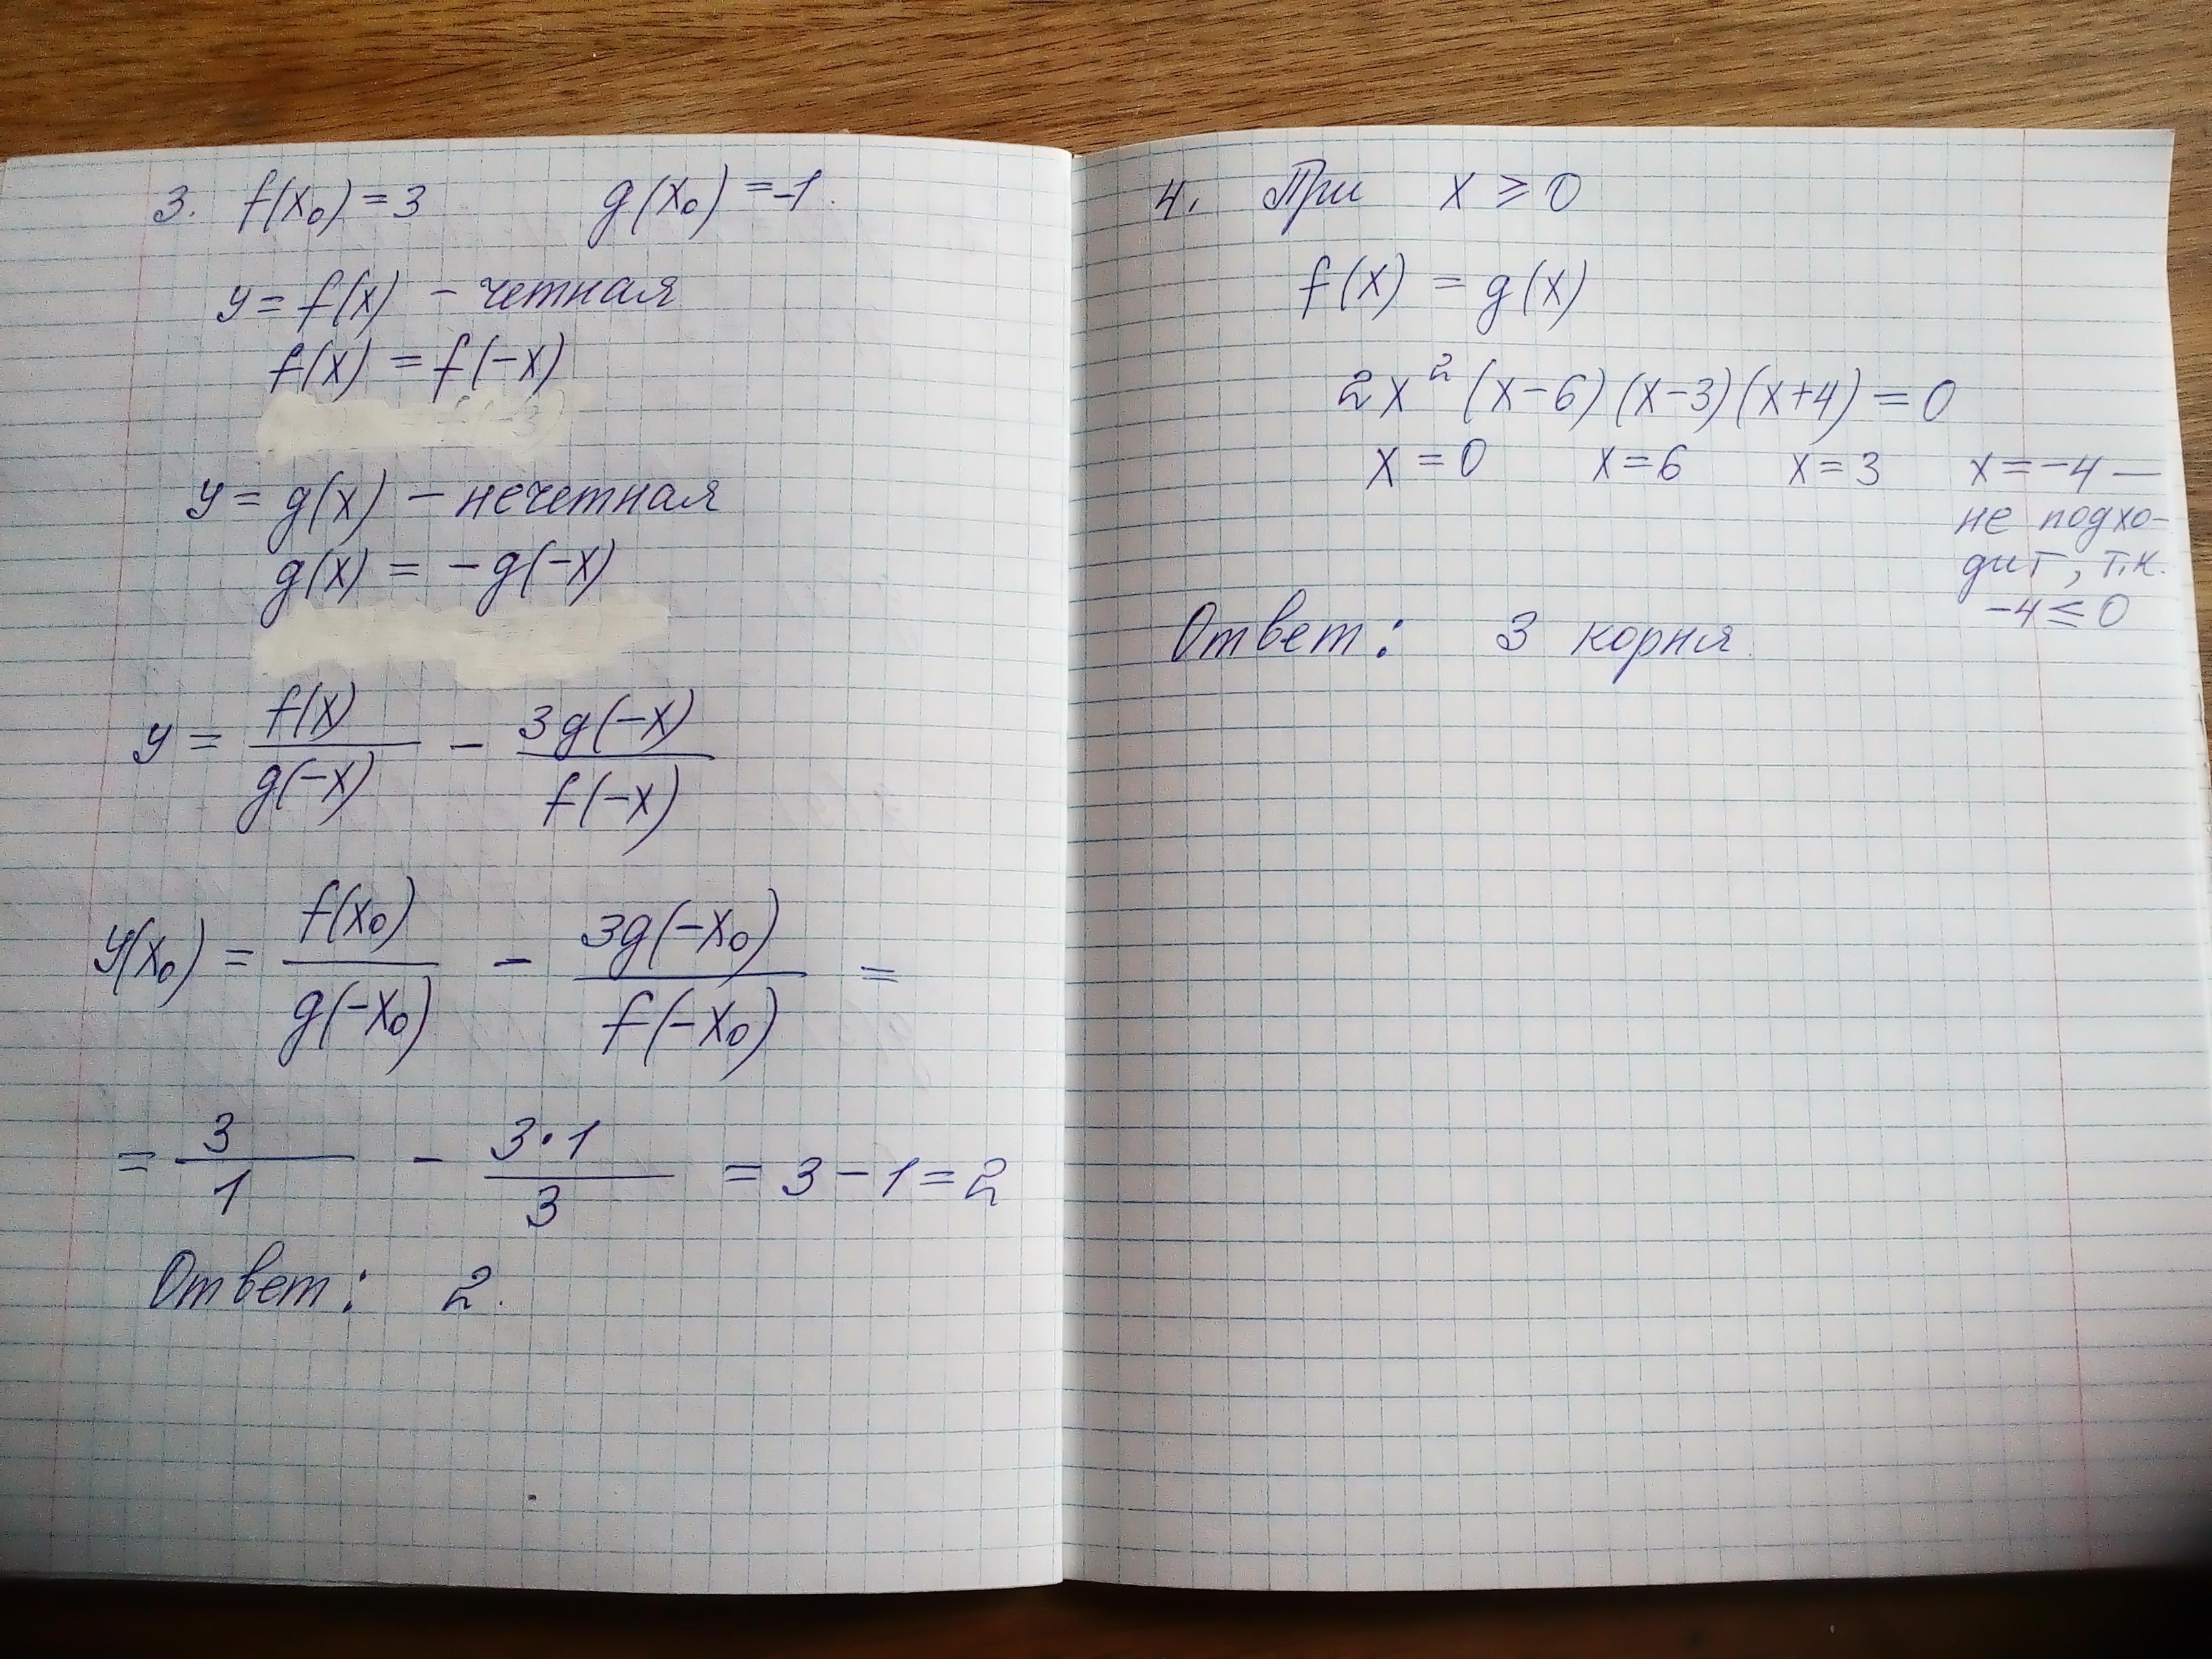 3. f(x₀) = 3 g(x₀) = -1.
y = f(x) - четная
f(x) = f(-x)
y = g(x) - нечетная
g(x) = -g(-x)
y = f(x)/g(-x) - 3g(-x)/f(-x)
y(x₀) = f(x₀)/g(-x₀) - 3g(-x₀)/f(-x₀) =
= 3/1 - 3·1/3 = 3 - 1 = 2
Ответ: 2.
4. При x ⩾ 0
f(x) = g(x)
2x²(x-6)(x-3)(x+4) = 0
x = 0 x = 6 x = 3 x = -4 —
не подхо-
дит, т.к.
-4 ≤ 0
Ответ: 3 корня.